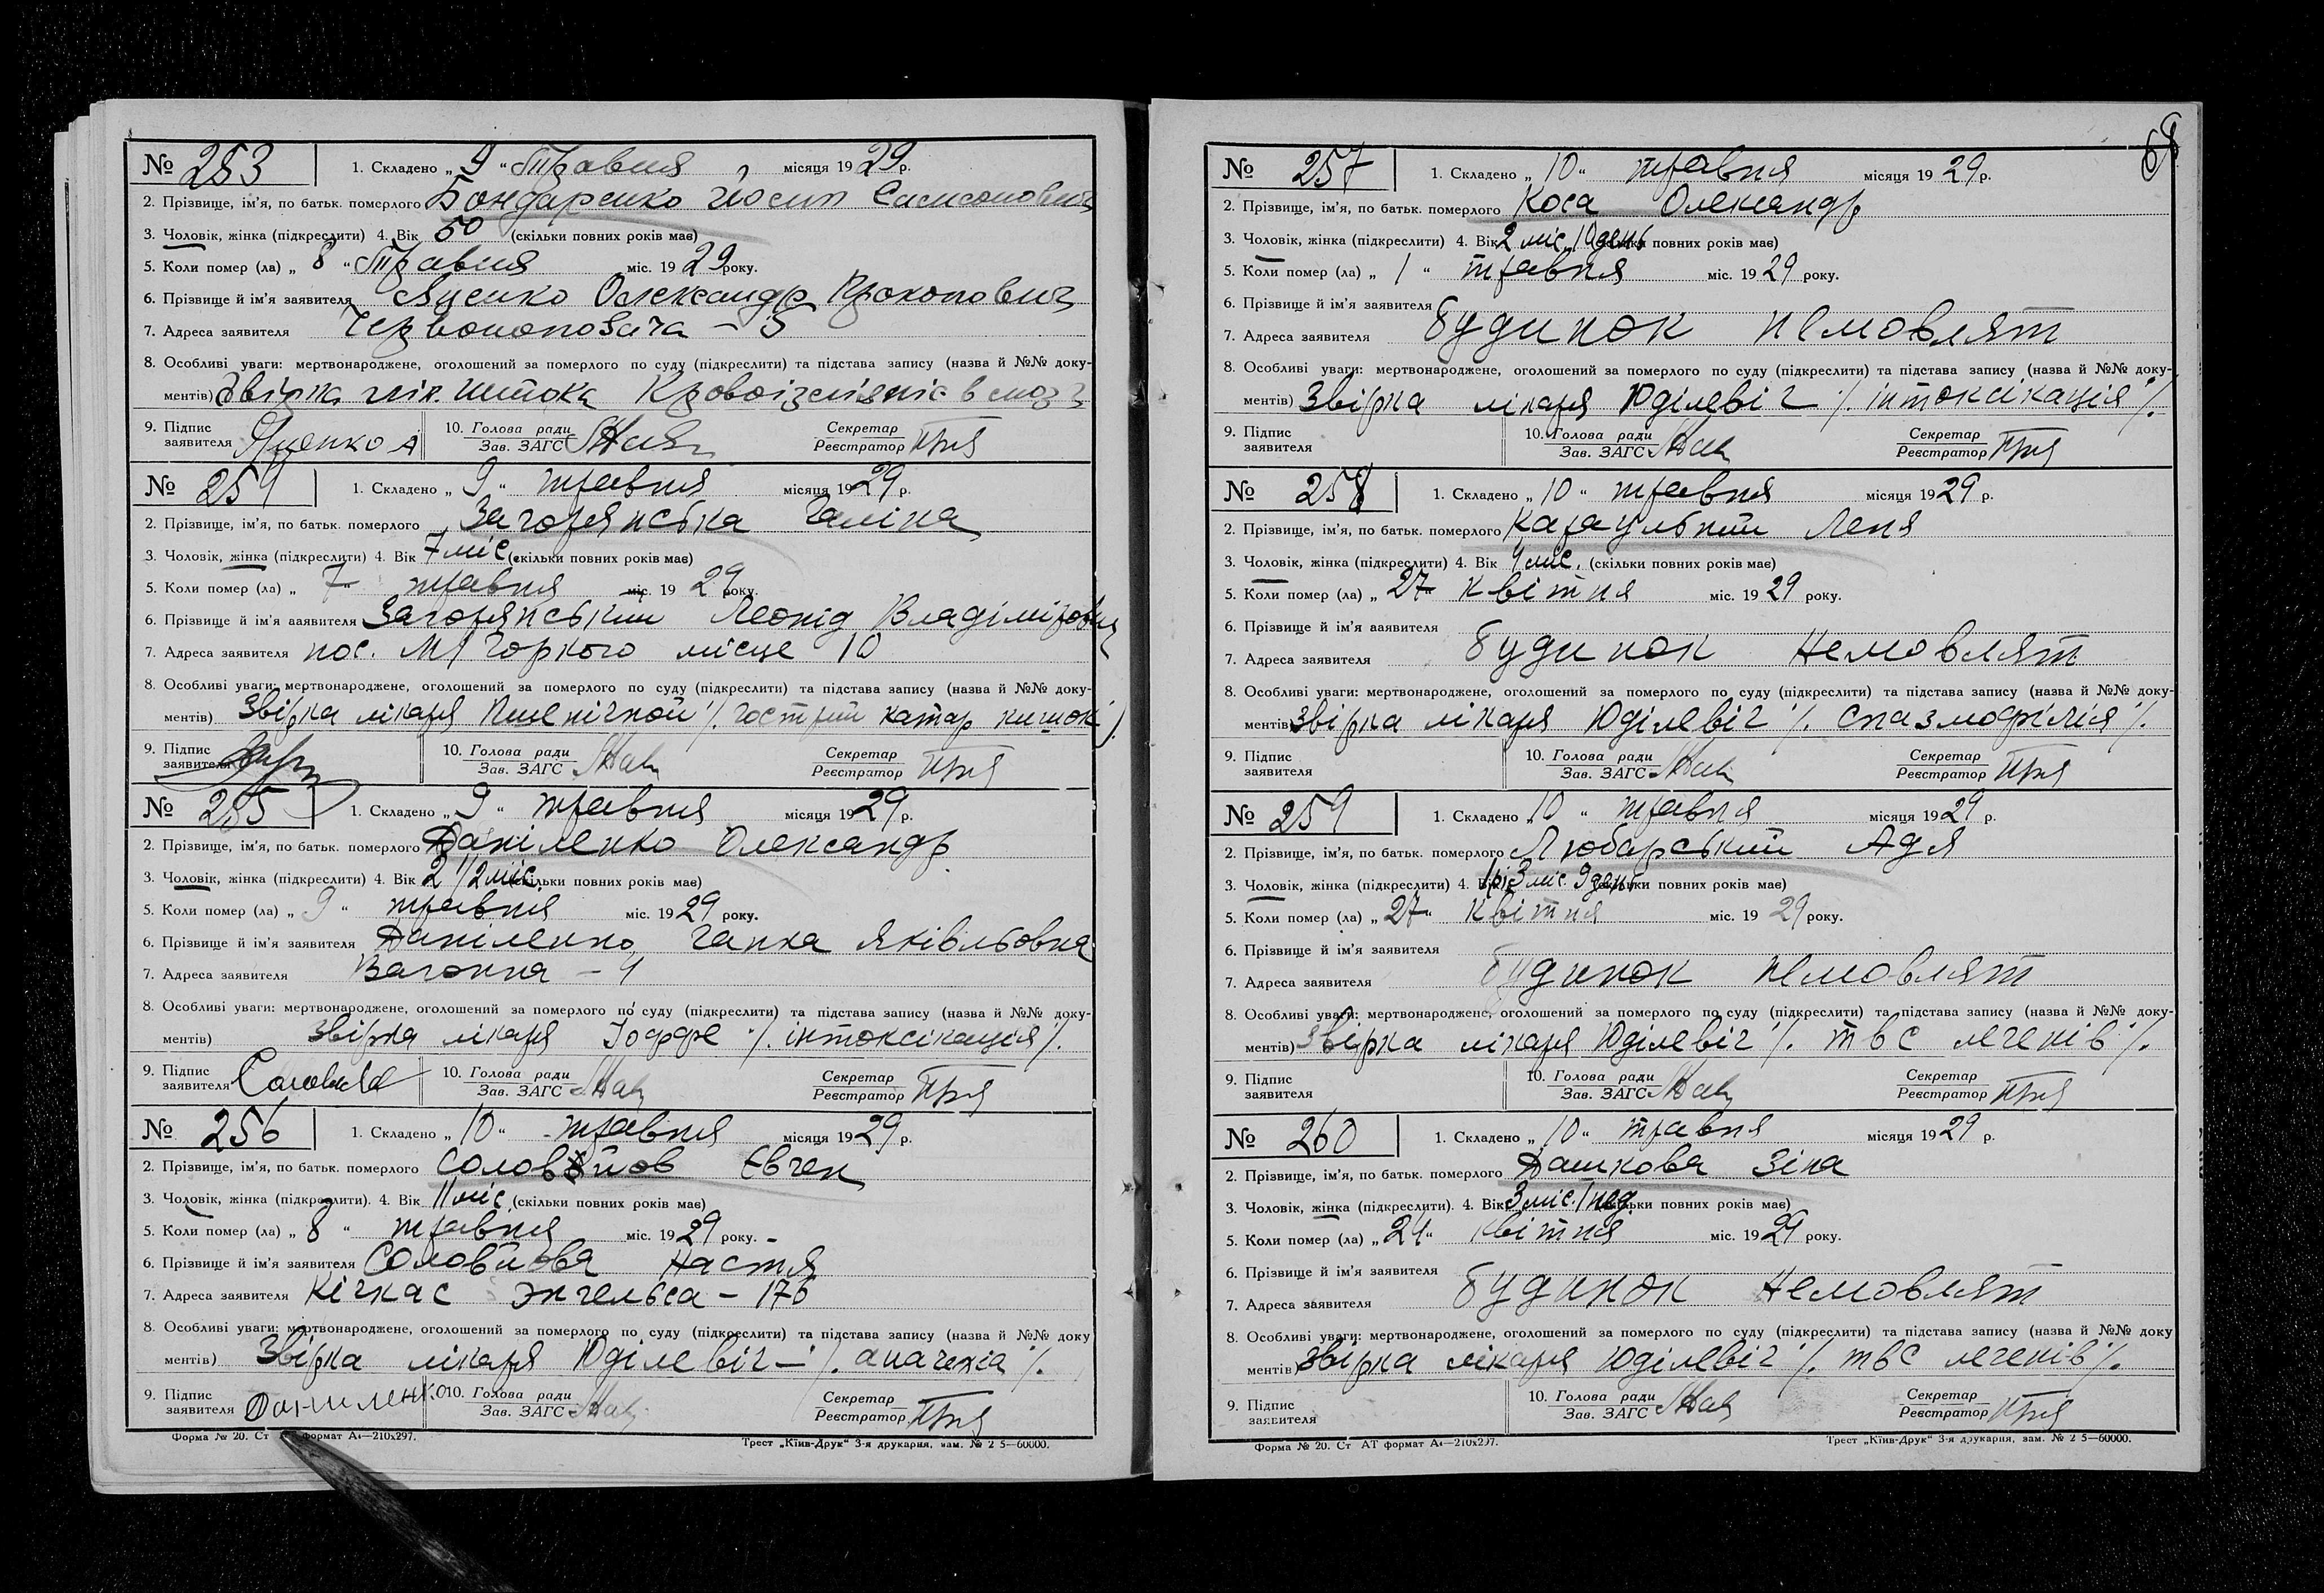 № 253 1. Складено „ 9 “ Травня місяця 1929 р.
2. Прізвище, ім'я, по батьк. померлого Бондаренко Йосип Самсонович
3. Чоловік, жінка (підкреслити) 4. Вік 50 (скільки повних років має)
5. Коли помер (ла) „ 8 “ Травня міс. 1929 року.
6. Прізвище й ім'я заявителя Яценко Олександр Прокопович
7. Адреса заявителя – 5
8. Особливі уваги: мертвонароджене, оголошений за померлого по суду (підкреслити) та підстава запису (назва й №№ доку-
ментів) Звірка лік. Штока
9. Підпис заявителя Яценко А 10. Голова ради Зав. ЗАГС Секретар Реєстратор
№ 254 1. Складено „ 9 “ травня місяця 1929 р.
2. Прізвище, ім'я, по батьк. померлого Загорянська Галіна
3. Чоловік, жінка (підкреслити) 4. Вік 7 міс (скільки повних років має)
5. Коли помер (ла) „ 7 “ травня міс. 1929 року.
6. Прізвище й ім'я заявителя Загорянський Леонід Владімірович
7. Адреса заявителя пос. М Горкого місце 10
8. Особливі уваги: мертвонароджене, оголошений за померлого по суду (підкреслити) та підстава запису (назва й №№ доку-
ментів) Звірка лікаря Пшенічной /. гострий катар кишок /.
9. Підпис заявителя 10. Голова ради Зав. ЗАГС Секретар Реєстратор
№ 255 1. Складено „ 9 “ травня місяця 1929 р.
2. Прізвище, ім'я, по батьк. померлого Даніленко Олександр
3. Чоловік, жінка (підкреслити) 4. Вік 2 1/2 міс (скільки повних років має)
5. Коли помер (ла) „ 9 “ травня міс. 1929 року.
6. Прізвище й ім'я заявителя Даніленко Ганна Яківльовна
7. Адреса заявителя Вагонна – 4
8. Особливі уваги: мертвонароджене, оголошений за померлого по суду (підкреслити) та підстава запису (назва й №№ доку-
ментів) Звірка лікаря Іоффе /. інтоксікація /.
9. Підпис заявителя 10. Голова ради Зав. ЗАГС Секретар Реєстратор
№ 256 1. Складено „ 10 “ травня місяця 1929 р.
2. Прізвище, ім'я, по батьк. померлого Соловйов Євген
3. Чоловік, жінка (підкреслити). 4. Вік 11 міс (скільки повних років має)
5. Коли помер (ла) „ 8 “ травня міс. 1929 року.
6. Прізвище й ім'я заявителя Соловйова Настя
7. Адреса заявителя Кічкас Энгельса – 176
8. Особливі уваги: мертвонароджене, оголошений за померлого по суду (підкреслити) та підстава запису (назва й №№ доку
ментів) Звірка лікаря Юділевіч – /. /.
9. Підпис заявителя Даниленко 10. Голова ради Зав. ЗАГС Секретар Реєстратор
Форма № 20. Ст формат А4—210х297. Трест „Київ-Друк“ 3-я друкарня, зам. № 2 5—60000.
№ 257 1. Складено „ 10 “ травня місяця 1929 р.
2. Прізвище, ім'я, по батьк. померлого Коса Олександр
3. Чоловік, жінка (підкреслити) 4. Вік 2 міс, 10 день повних років має)
5. Коли помер (ла) „ 1 “ травня міс. 1929 року.
6. Прізвище й ім'я заявителя
7. Адреса заявителя будинок немовлят
8. Особливі уваги: мертвонароджене, оголошений за померлого по суду (підкреслити) та підстава запису (назва й №№ доку-
ментів) Звірка лікаря Юділевіч /. інтоксікація /.
9. Підпис заявителя 10. Голова ради Зав. ЗАГС Секретар Реєстратор
№ 258 1. Складено „ 10 “ травня місяця 1929 р.
2. Прізвище, ім'я, по батьк. померлого Караульний Леня
3. Чоловік, жінка (підкреслити) 4. Вік 4 міс. (скільки повних років має)
5. Коли помер (ла) „ 27 “ квітня міс. 1929 року.
6. Прізвище й ім'я заявителя
7. Адреса заявителя будинок Немовлят
8. Особливі уваги: мертвонароджене, оголошений за померлого по суду (підкреслити) та підстава запису (назва й №№ доку-
ментів) Звірка лікаря Юділевіч /. Спазмофілія /.
9. Підпис заявителя 10. Голова ради Зав. ЗАГС Секретар Реєстратор
№ 259 1. Складено „ 10 “ травня місяця 1929 р.
2. Прізвище, ім'я, по батьк. померлого Любарський Адя
3. Чоловік, жінка (підкреслити) 4. Вік 1 рік 3 міс 9 день повних років має)
5. Коли помер (ла) „ 27 “ квітня міс. 1929 року.
6. Прізвище й ім'я заявителя
7. Адреса заявителя будинок немовлят
8. Особливі уваги: мертвонароджене, оголошений за померлого по суду (підкреслити) та підстава запису (назва й №№ доку-
ментів) Звірка лікаря Юділевіч /. твс легенів /.
9. Підпис заявителя 10. Голова ради Зав. ЗАГС Секретар Реєстратор
№ 260 1. Складено „ 10 “ травня місяця 1929 р.
2. Прізвище, ім'я, по батьк. померлого Дашкова Зіна
3. Чоловік, жінка (підкреслити). 4. Вік 3 міс. 1 нед. повних років має)
5. Коли помер (ла) „ 24 “ квітня міс. 1929 року.
6. Прізвище й ім'я заявителя
7. Адреса заявителя будинок Немовлят
8. Особливі уваги: мертвонароджене, оголошений за померлого по суду (підкреслити) та підстава запису (назва й №№ доку
ментів) Звірка лікаря Юділевіч /. твс легенів /.
9. Підпис заявителя 10. Голова ради Зав. ЗАГС Секретар Реєстратор
Форма № 20. Ст АТ формат А4—210х297. Трест „Київ-Друк“ 3-я друкарня, зам. № 2 5—60000.